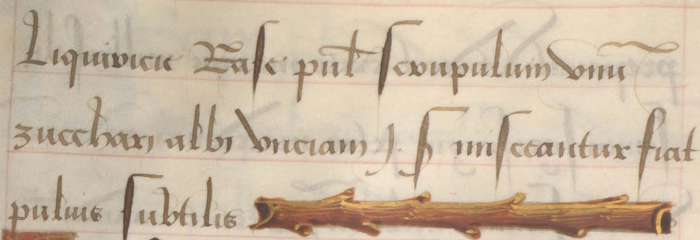 Liquiricie Rase pul scrupulum vnu
zucchari albi vnciam j. S misceantur fiat
puluis subtilis